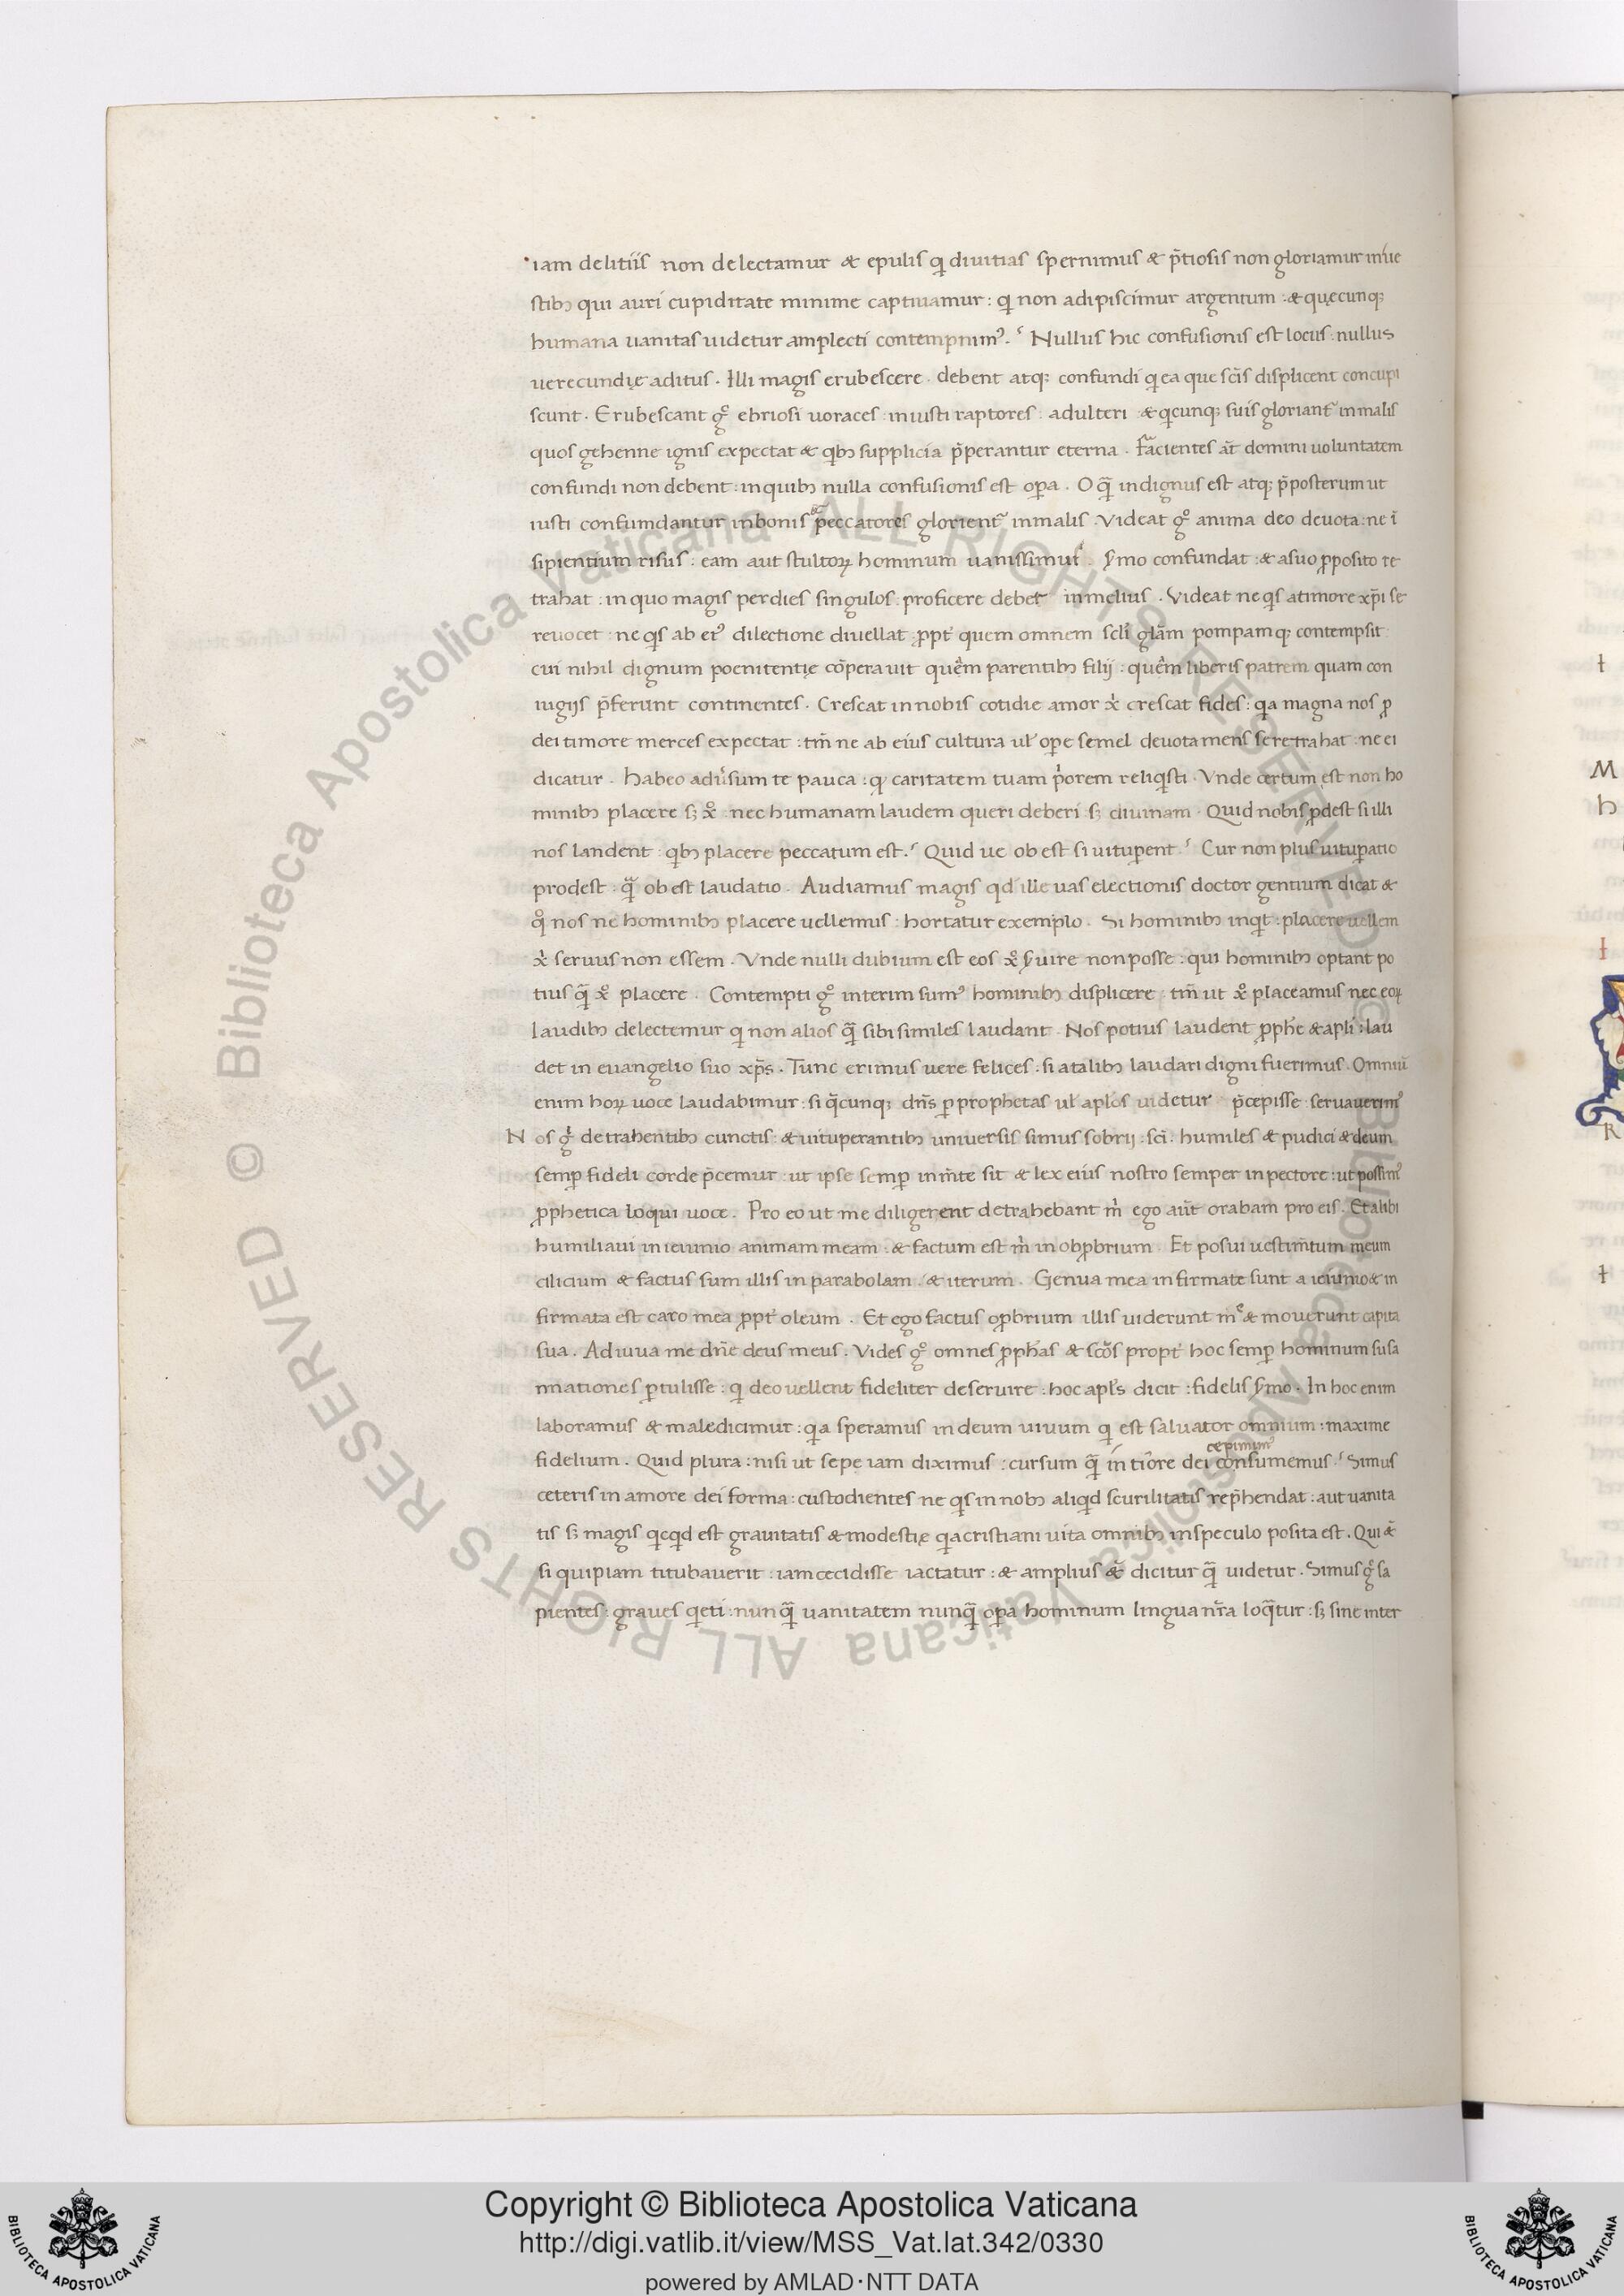 iam delitiis non delectamur & epulis qi diuitias spernimus & p̄tiosis non gloriamur inue
stibꝫ qui auri cupiditate minime captiuamur : qi non adipiscimur argentum : & quęcunqꝫ
humana uanitas uidetur amplecti contempnimꝰ. Nullus hic confusionis est locus : nullus
uerecundię aditus . Illi magis erubescere . debent atqꝫ confundi qi ea que scīs displicent concupi
scunt . Erubescant gͦ ebriosi uoraces : iniusti raptores : adulteri : & qicunqꝫ suis gloriant᷑ in malis
quos gehenne ignis expectat & qibꝫ supplicia p̄perantur eterna . Facientes aūt domini uoluntatem
confundi non debent : in quibꝫ nulla confusionis est oꝑa . O qͣ̄ indignus est atqꝫ p̄posterum ut
iusti confumdantur in bonis & peccatores glorient᷑ in malis . Videat gͦ anima deo deuota : ne ī
sipientium risus : eam aut stultoꝝ hominum uanissimus . ẜmo confundat : & a suo ꝓposito re
trahat : in quo magis per dies singulos : proficere debet in melius . Videat ne qis a timore xp̄i se
reuocet : ne qis ab eiꝰ dilectione diuellat ꝓpt᷑ quem omnem scl̄i glām pompamqꝫ contempsit
cui nihil dignum poenitentię cōperauit quēm parentibꝫ filij : quēm liberis patrem quam con
iugijs p̄ferunt continentes . Crescat in nobis cotidie amor xi crescat fides : qia magna nos ꝓ
dei timore merces expectat : tm̄ ne ab eius cultura ul̓ oꝑe semel deuota mens se retrahat : ne ei
dicatur . Habeo adu̓sum te pauca : qꝫ caritatem tuam p̓orem reliqisti . Vnde certum est non ho
minibꝫ placere sꝫ xͦ : nec humanam laudem queri deberi sꝫ diuinam . Quid nobis ꝓdest si illi
nos landent : qibꝫ placere peccatum est. Quid ue ob est si uituꝑent Cur non plus uituꝑatio
prodest : qͣ̄ ob est laudatio . Audiamus magis qd ille uas electionis doctor gentium dicat &
qͦ nos ne hominibꝫ placere uellemus : hortatur exemplo . Si hominibꝫ inqit : placere uellem
xi seruus non essem . Vnde nulli dubium est eos xͦ ẜuire non posse : qui hominibꝫ optant po
tius qͣ̄ xͦ placere . Contempti gͦ interim sumꝰ hominibꝫ displicere : tm̄ ut xͦ placeamus nec eoꝝ
laudibꝫ delectemur qi non alios qͣ̄ sibi similes laudant . Nos potius laudent ꝓphē & apl̄i : lau
det in euangelio suo xp̄s . Tunc erimus uere felices . si a talibꝫ laudari digni fuerimus . Omniū
enim hoꝝ uoce laudabimur : si qͣ̄cunqꝫ dn̄s ꝑ prophetas ul̓ apl̄os uidetur p̄cepisse seruauerimꝰ
Nos gͥ detrahentibꝫ cunctis : & uituperantibꝫ uniuersis simus sobrij : scī . humiles & pudici & deum
semꝑ fideli corde p̄cemur : ut ipse semꝑ in m̄te sit & lex eius nostro semper in pectore : ut possimꝰ
ꝓphetica loqui uoce . Pro eo ut me diligerent detrahebant m̓ ego aūt orabam pro eis . Et alibi
humiliaui in ieiunio animam meam . & factum est m̓ in obꝓbrium Et posui uestim̄tum meum
cilicium & factus sum illis in parabolam . & iterum . Genua mea infirmate sunt a ieiunio & in
firmata est caro mea ꝓpt᷑ oleum . Et ego factus oꝓbrium illis uiderunt mͤ & mouerunt capita
sua . Adiuua me dn̄e deus meus . Vides gͦ omnes ꝓph̄as & scōs propt᷑ hoc semꝑ hominum susa
nnationes ꝑtulisse : qi deo uellent fideliter deseruire : hoc apl̄s dicit : fidelis ẜmo . In hoc enim
laboramus & maledicimur : qia speramus in deum uiuum qi est saluator omnium : maxime
fidelium . Quid plura : nisi ut sepe iam diximus : cursum qͣ̄ in tiōre dei consumemus. Simus
cepimimꝰ
ceteris in amore dei forma : custodientes ne qis in nobꝫ aliqid scurilitatis rep̄hendat : aut uanita
tis sꝫ magis qicqid est grauitatis & modestię qia cristiani uita omnibꝫ in speculo posita est . Qui &̄
si quipiam titubauerit : iam cecidisse iactatur : & amplius &̄ dicitur qͣ̄ uidetur . Simus gͥ sa
pientes : graues qieti : nunqͣ̄ uanitatem nunqͣ̄ oꝑa hominum lingua nr̄a loqͣ̄tur : sꝫ sine inter
© Biblioteca Apostolica Vaticana ALL RIGHTS RESERVED
© Biblioteca Apostolica Vaticana ALL RIGHTS RESERVED
Copyright © Biblioteca Apostolica Vaticana
http://digi.vatlib.it/view/MSS_Vat.lat.342/0330
powered by AMLAD·NTT DATA
BIBLIOTECA APOSTOLICA VATICANA
BIBLIOTECA APOSTOLICA VATICANA